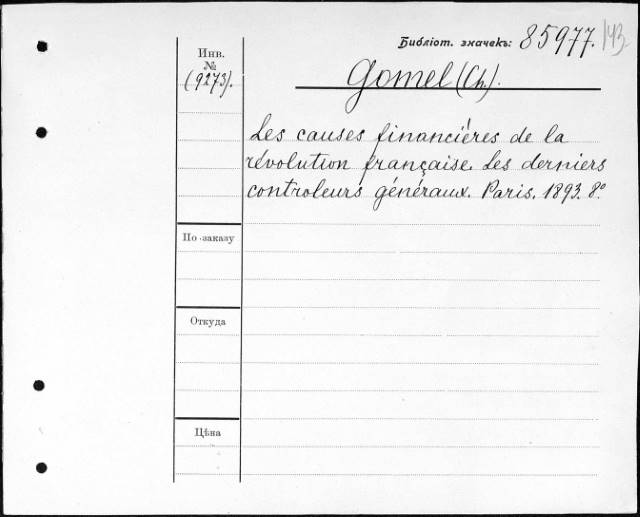 Библіот. значекъ: 85977./43
Инв.
№
(9273).
Gomel (Ch.).
Les causes financiéres de la
révolution française. Les derniers
controleurs généraux. Paris. 1893. 8º
По заказу
Откуда
Цѣна